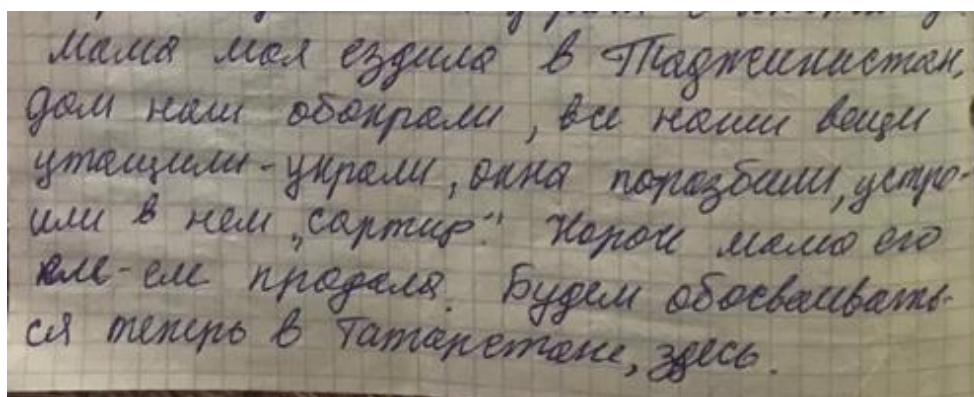 Мама моя ездила в Таджикистан,
дом наш обокрали, все наши вещи
утащили-украли, окна поразбили, устро-
или в нем „сартир“. Короч мама его
еле-еле продала. Будем обосваивать-
ся теперь в Татарстане, здесь.